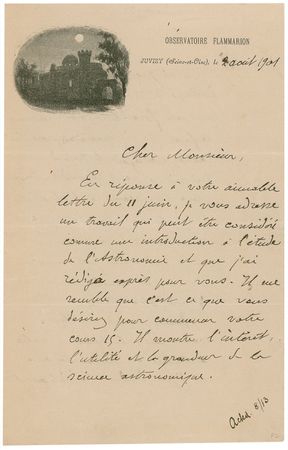 OBSERVATOIRE FLAMMARION
JUVISY (Seine-et-Oise), le 2 août 1901
Cher Monsieur,
En réponse à votre aimable
lettre du 11 juin, je vous adresse
un travail qui peut être considéré
comme une introduction à l'étude
de l'Astronomie et que j'ai
rédigé exprès pour vous. Il me
semble que c'est ce que vous
désirez pour commencer votre
cours 15. Il montre l'intérêt,
l'utilité et la grandeur de la
science astronomique.
Ackd. 8/13